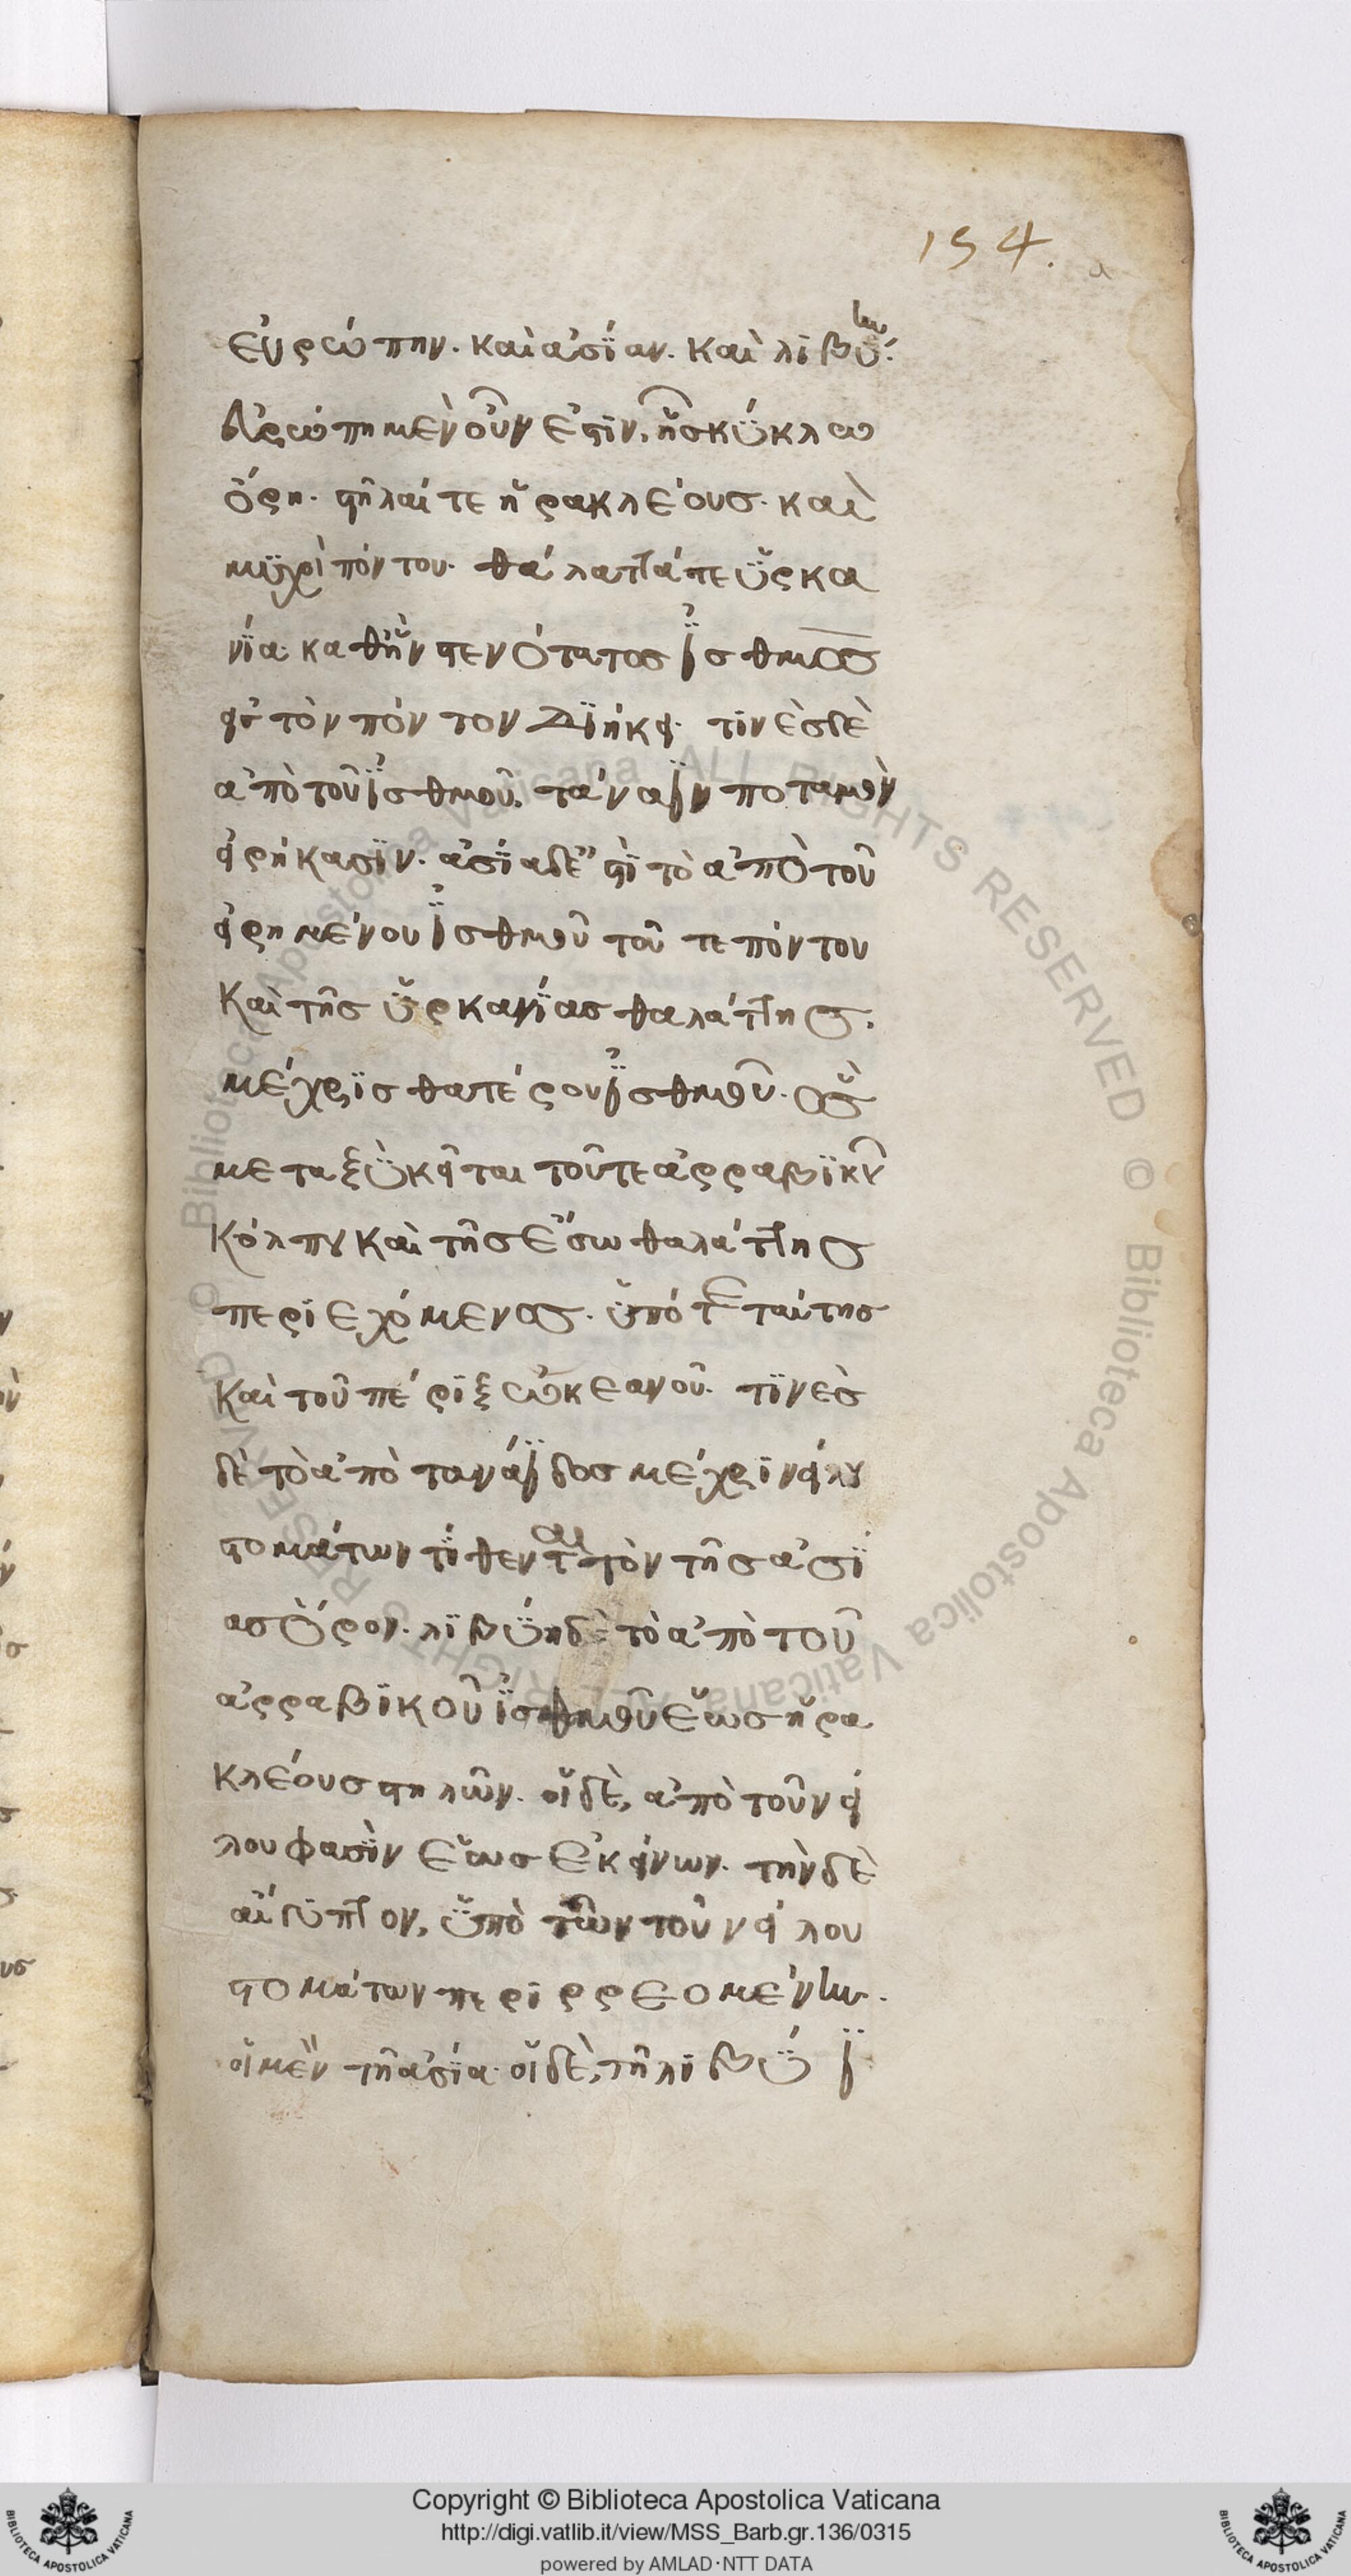 154.
εὐρώπην. καὶ ἀσΐαν. καὶ λιβύην:
Εὐρώπη μὲν οὖν ἐστιν, ἧς κύκλω
ὅροι. στῆλαί τε ἡρακλέους. καὶ
μυχοὶ πόντου. θάλαττά τε ὑρκα
νία. καθ' ἣν στενότατος ἰσθμὸς
εἰς τὸν πόντον διήκει. τινὲς δὲ
ἀπὸ τοῦ ἰσθμοῦ. τάναϊν ποταμὸν
εἰρήκασιν. ἀσία δὲ ἐστὶ τὸ ἀπὸ τοῦ
εἰρημένου ἰσθμοῦ τοῦ τε πόντου
καὶ τῆς ὑρκανίας θαλάττης.
μέχρις θατέρου ἰσθμοῦ. ὃς
μεταξὺ κεῖται τοῦ τε ἀρραβικοῦ
κόλπου καὶ τῆς ἔσω θαλάττης
περιεχόμενος. ὑπό τε ταύτης
καὶ τοῦ πέριξ ὠκεανοῦ. τινὲς
δὲ τὸ ἀπὸ τανάϊδος μέχρι νείλου
στομάτων τίθενται τὸν τῆς ἀσί
ας ὅρον. λιβύη δὲ τὸ ἀπὸ τοῦ
ἀρραβικοῦ ἰσθμοῦ ἕως ἡρα
κλέους στηλῶν. οἱ δὲ, ἀπὸ τοῦ νεί
λου φασὶν ἕως ἐκείνων. τὴν δὲ
αἴγυπτον, ὑπὸ τῶν τοῦ νείλου
στομάτων περιρρεομένην.
οἱ μὲν τῆ ἀσία. οἱ δὲ, τῆ λιβύη
Copyright © Biblioteca Apostolica Vaticana
http://digi.vatlib.it/view/MSS_Barb.gr.136/0315
powered by AMLAD·NTT DATA
© Biblioteca Apostolica Vaticana ALL RIGHTS RESERVED © Biblioteca Apostolica Vaticana ALL RIGHTS RESERVED